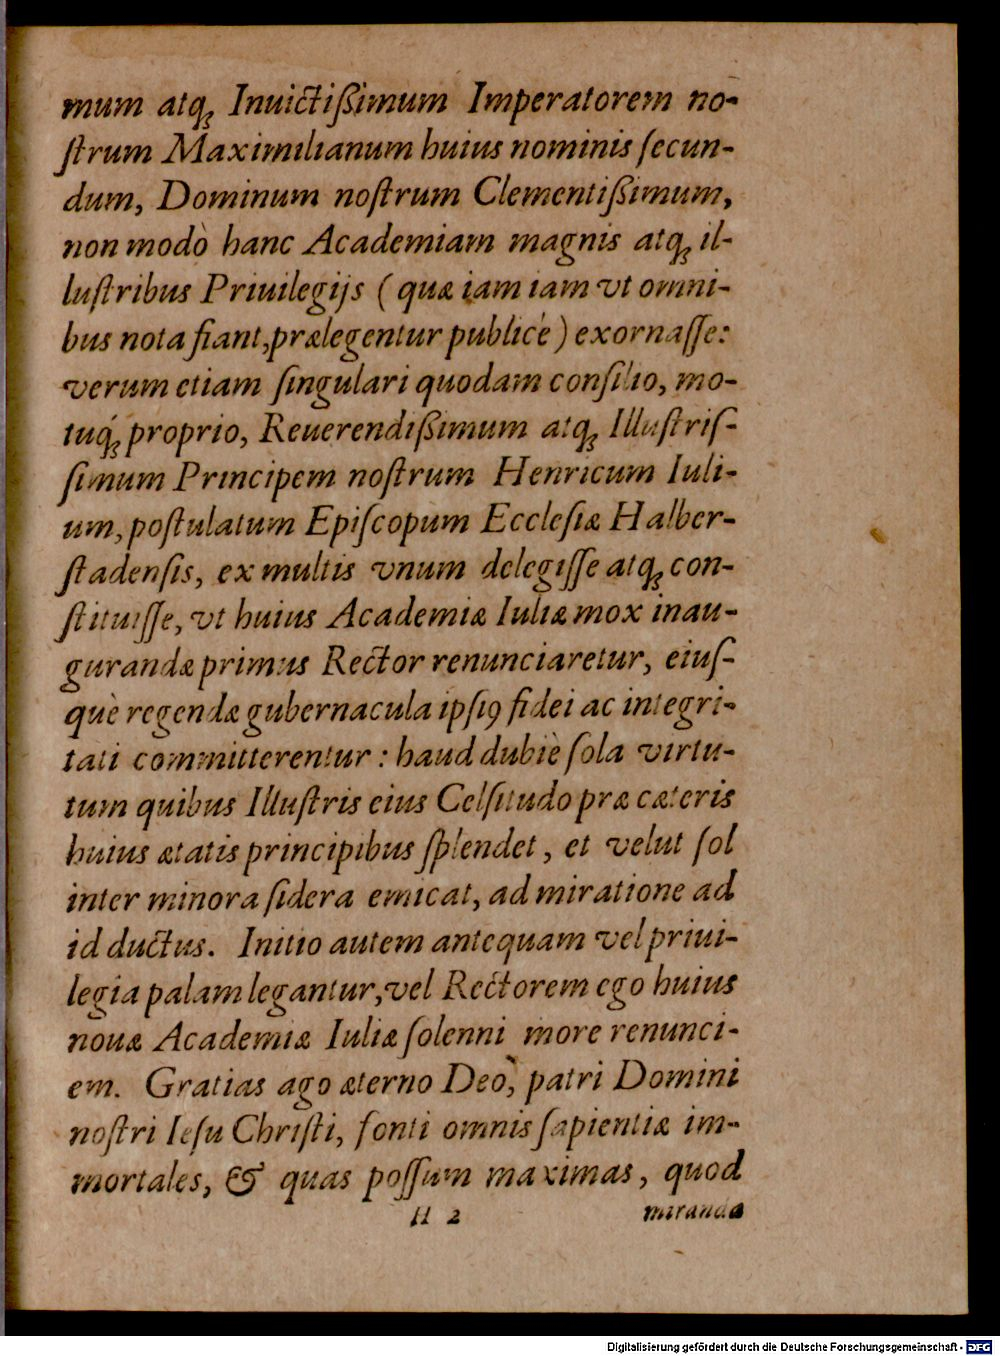 mum atq; Inuictißimum Imperatorem no-
ſtrum Maximilianum huius nominis ſecun-
dum, Dominum noſtrum Clementißimum,
non modò hanc Academiam magnis atq; il-
luſtribus Priuilegijs ( quæ iam iam vt omni-
bus nota fiant, prælegentur publicè ) exornaſſe:
verum etiam ſingulari quodam conſilio, mo-
tuq́; proprio, Reuerendißimum atq; Illuſtriſ-
ſimum Principem noſtrum Henricum Iuli-
um, poſtulatum Epiſcopum Eccleſiæ Halber-
ſtadenſis, ex multis vnum delegiſſe atq; con-
ſtituiſſe, vt huius Academiæ Iuliæ mox inau-
gurandæ primus Rector renunciaretur, eiuſ-
què regendæ gubernacula ipſiꝰ fidei ac integri-
tati committerentur : haud dubiè ſola virtu-
tum quibus Illuſtris eius Celſitudo præ cæteris
huius ætatis principibus ſplendet, et velut ſol
inter minora ſidera emicat, ad miratione ad
id ductus. Initio autem antequam vel priui-
legia palam legantur, vel Rectorem ego huius
nouæ Academiæ Iuliæ ſolenni more renunci-
em. Gratias ago æterno Deo, patri Domini
noſtri Ieſu Chriſti, fonti omnis ſapientiæ im-
mortales, & quas poſſum maximas, quod
H 2 miranda
Digitalisierung gefördert durch die Deutsche Forschungsgemeinschaft - DFG